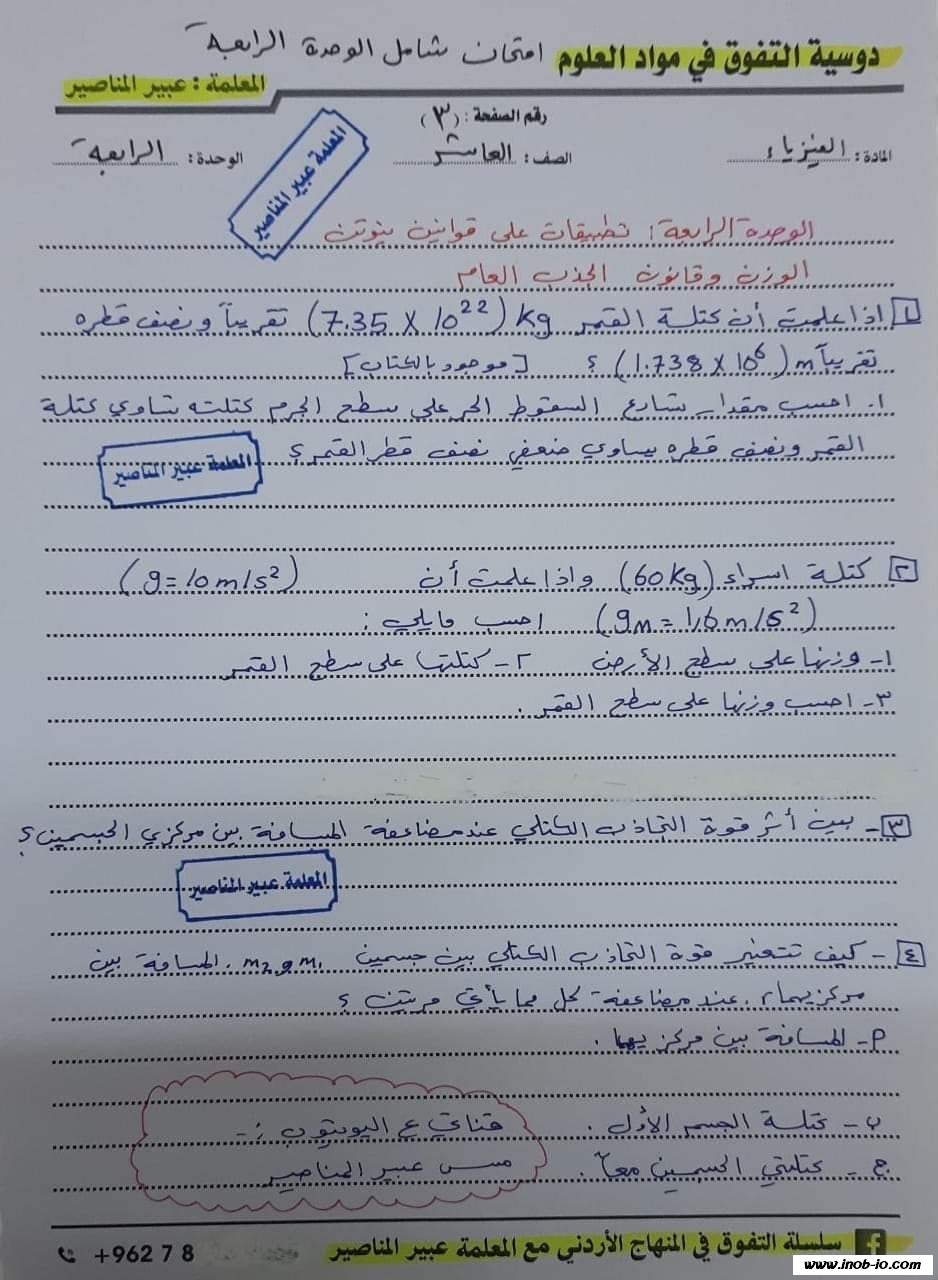 دوسية التفوق في مواد العلوم امتحان شامل الوحدة الرابعة
المعلمة : عبير المناصير
رقم الصفحة : (٣)
المادة : الفيزياء الصف : العاشر الوحدة : الرابعة
المعلمة عبير المناصير
الوحدة الرابعة : تطبيقات على قوانين نيوتن
الوزن وقانون الجذب العام
١ اذا علمت أن كتلة القمر (7.35 × 10²²) kg تقريباً ونصف قطره
تقريباً (1.738 × 10⁶) m ؟ [موجود بالكتاب]
١. احسب مقدار تسارع السقوط الحر على سطح الجرم كتلته تساوي كتلة
القمر ونصف قطره يساوي ضعفي نصف قطر القمر ؟
المعلمة عبير المناصير
٢ كتلة اسراء (60 kg) واذا علمت أن (g = 10 m/s²)
(gm = 1,6 m/s²) احسب مايلي :
١- وزنها على سطح الأرض ٢- كتلتها على سطح القمر
٣- احسب وزنها على سطح القمر .
٣- بين أثر قوة التجاذب الكتلي عند مضاعفة المسافة بين مركزي الجسمين ؟
المعلمة عبير المناصير
٤- كيف تتغير قوة التجاذب الكتلي بين جسمين m₁ و m₂ . المسافة بين
مركزيهما r . عند مضاعفة كل مما يأتي مرتين ؟
أ- المسافة بين مركزيهما .
ب- كتلة الجسم الأول .
ج- كتلتي الجسمين معاً .
قناتي ع اليوتيوب :-
مس عبير المناصير
سلسلة التفوق في المنهاج الأردني مع المعلمة عبير المناصير
+962 7 8
www.inob-io.com